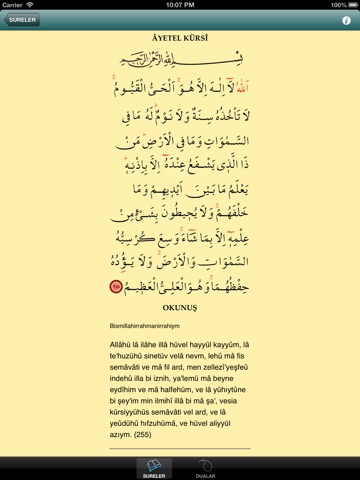 Carrier
10:07 PM
100%
SURELER
ÂYETEL KÜRSÎ
بِسْمِ اللهِ الرَّحْمٰنِ الرَّحِيمِ
اَللهُ لَٓا اِلٰهَ اِلَّا هُوَۚ اَلْحَيُّ الْقَيُّومُۚ
لَا تَأْخُذُهُ سِنَةٌ وَلَا نَوْمٌۜ لَهُ مَا فِي
السَّمٰوَاتِ وَمَا فِي الْاَرْضِۜ مَنْ
ذَا الَّذ۪ي يَشْفَعُ عِنْدَهُٓ اِلَّا بِاِذْنِه۪ۜ
يَعْلَمُ مَا بَيْنَ اَيْد۪يهِمْ وَمَا
خَلْفَهُمْۚ وَلَا يُح۪يطُونَ بِشَيْءٍ مِنْ
عِلْمِه۪ٓ اِلَّا بِمَا شَٓاءَۚ وَسِعَ كُرْسِيُّهُ
السَّمٰوَاتِ وَالْاَرْضَۚ وَلَا يَؤُ۫دُهُ
حِفْظُهُمَاۚ وَهُوَ الْعَلِيُّ الْعَظ۪يمُ ٢٥٥
OKUNUŞ
Bismillahirrahmanirrahiym
Allâhü lâ ilâhe illâ hüvel hayyül kayyûm, lâ
te'huzühû sinetüv velâ nevm, lehû mâ fis
semâvâti ve mâ fil ard, men zellezî'yeşfeû
indehû illa bi iznih, ya'lemü mâ beyne
eydîhim ve mâ halfehüm, ve lâ yühıytûne
bi şey'im min ilmihî illâ bi mâ şa', vesia
kürsiyyühüs semâvâti vel ard, ve lâ
yeûdühû hıfzuhümâ, ve hüvel aliyyül
azıym. (255)
SURELER
DUALAR